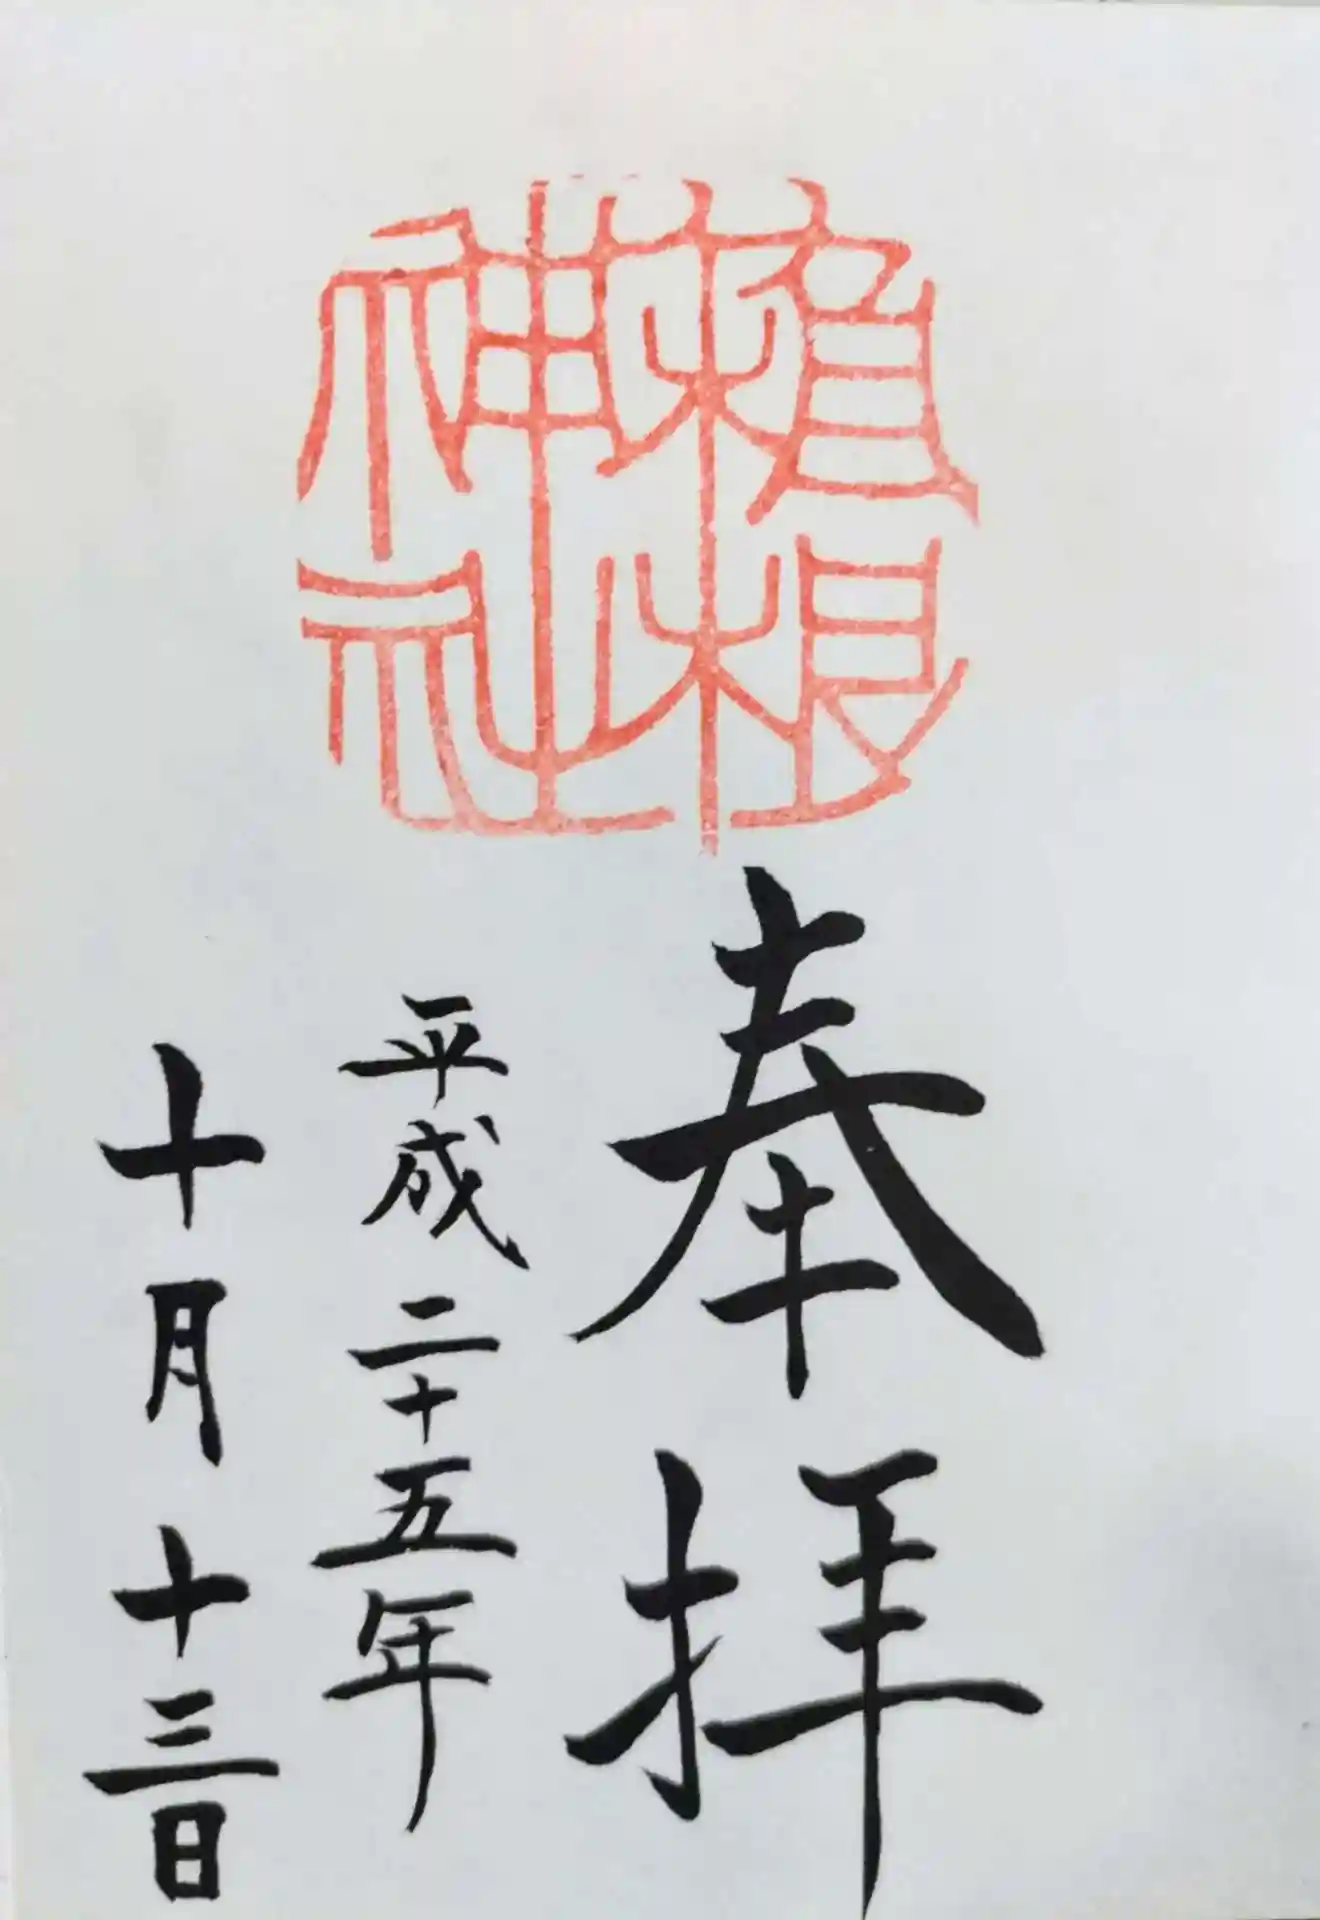 根
神社
奉拝
平成二十五年
十月十三日